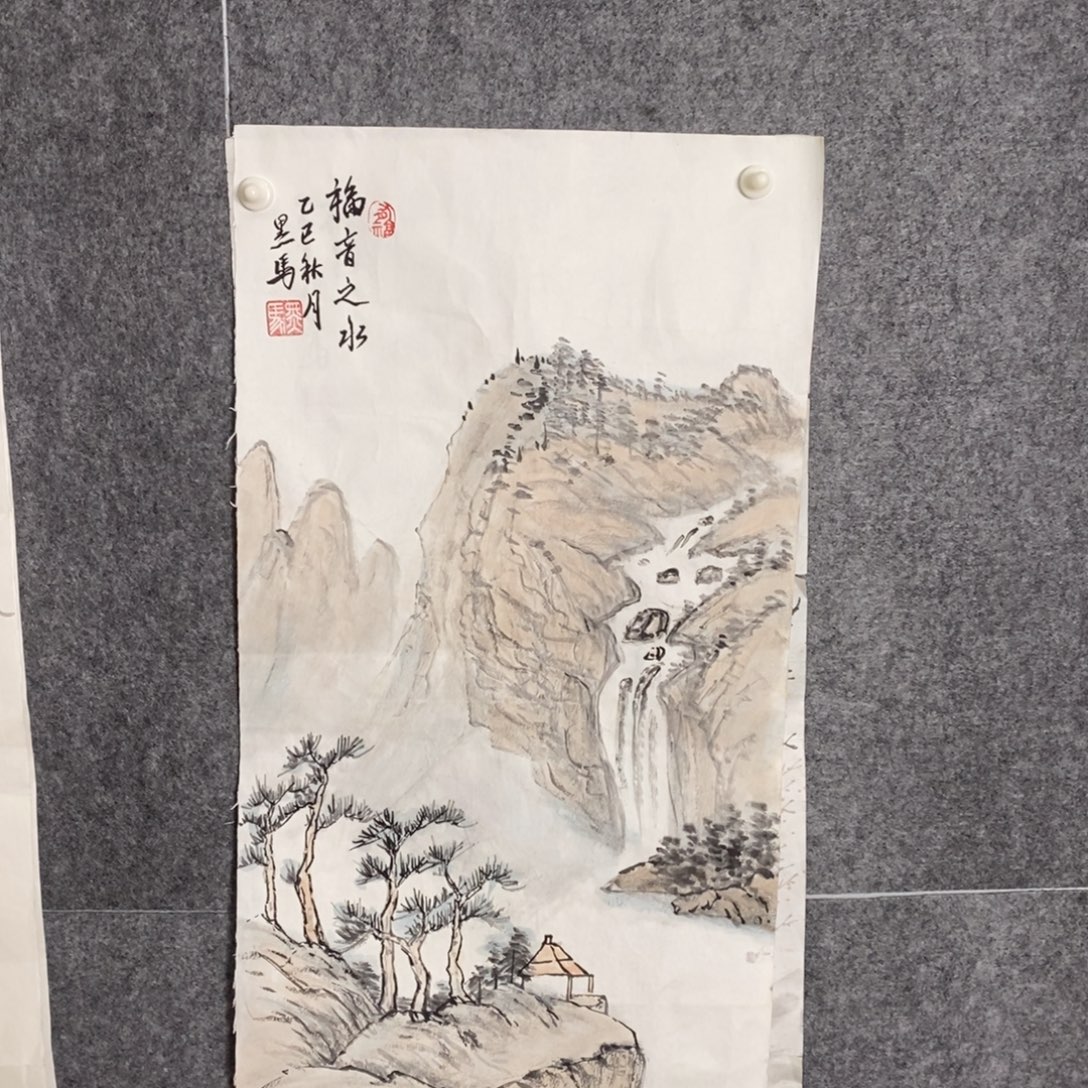 福音之水
乙巳秋月
黑馬